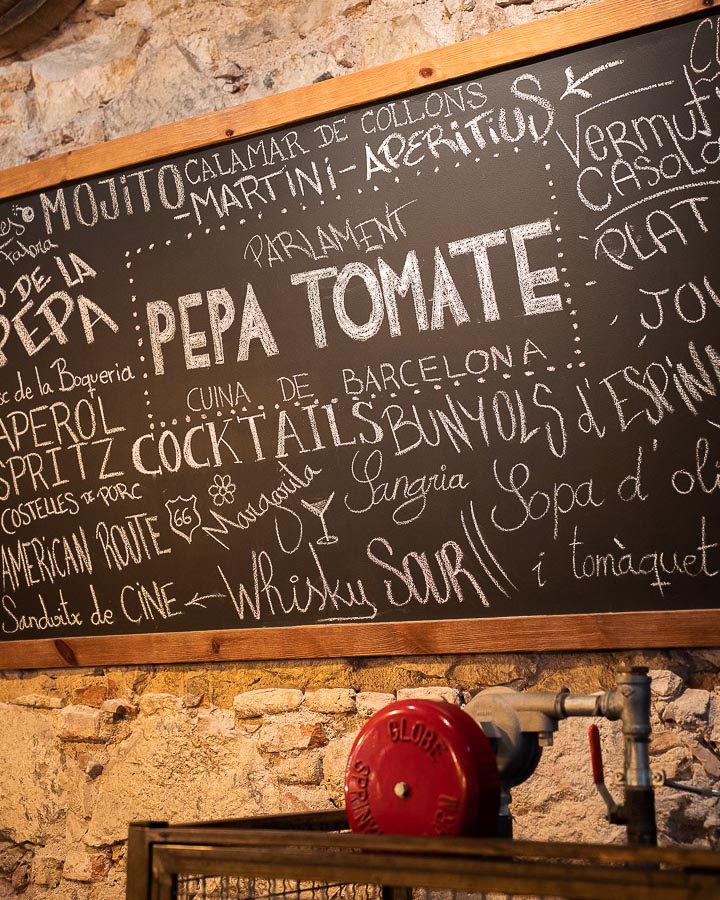 MOJITO
CALAMAR DE COLLONS
-MARTINI-APERITIUS
Fabra
DE LA
PEPA
PARLAMENT
PEPA TOMATE
CUINA DE BARCELONA
PLAT
de la Boqueria
APEROL
SPRITZ
COCKTAILS
BUNYOLS d'ESPIN
COSTELLES DE PORC
AMERICAN ROUTE
66
Margarita
Sangria
Sopa d'oli
i tomàquet
Sandvitx de CINE
Whisky SOUR
GLOBE